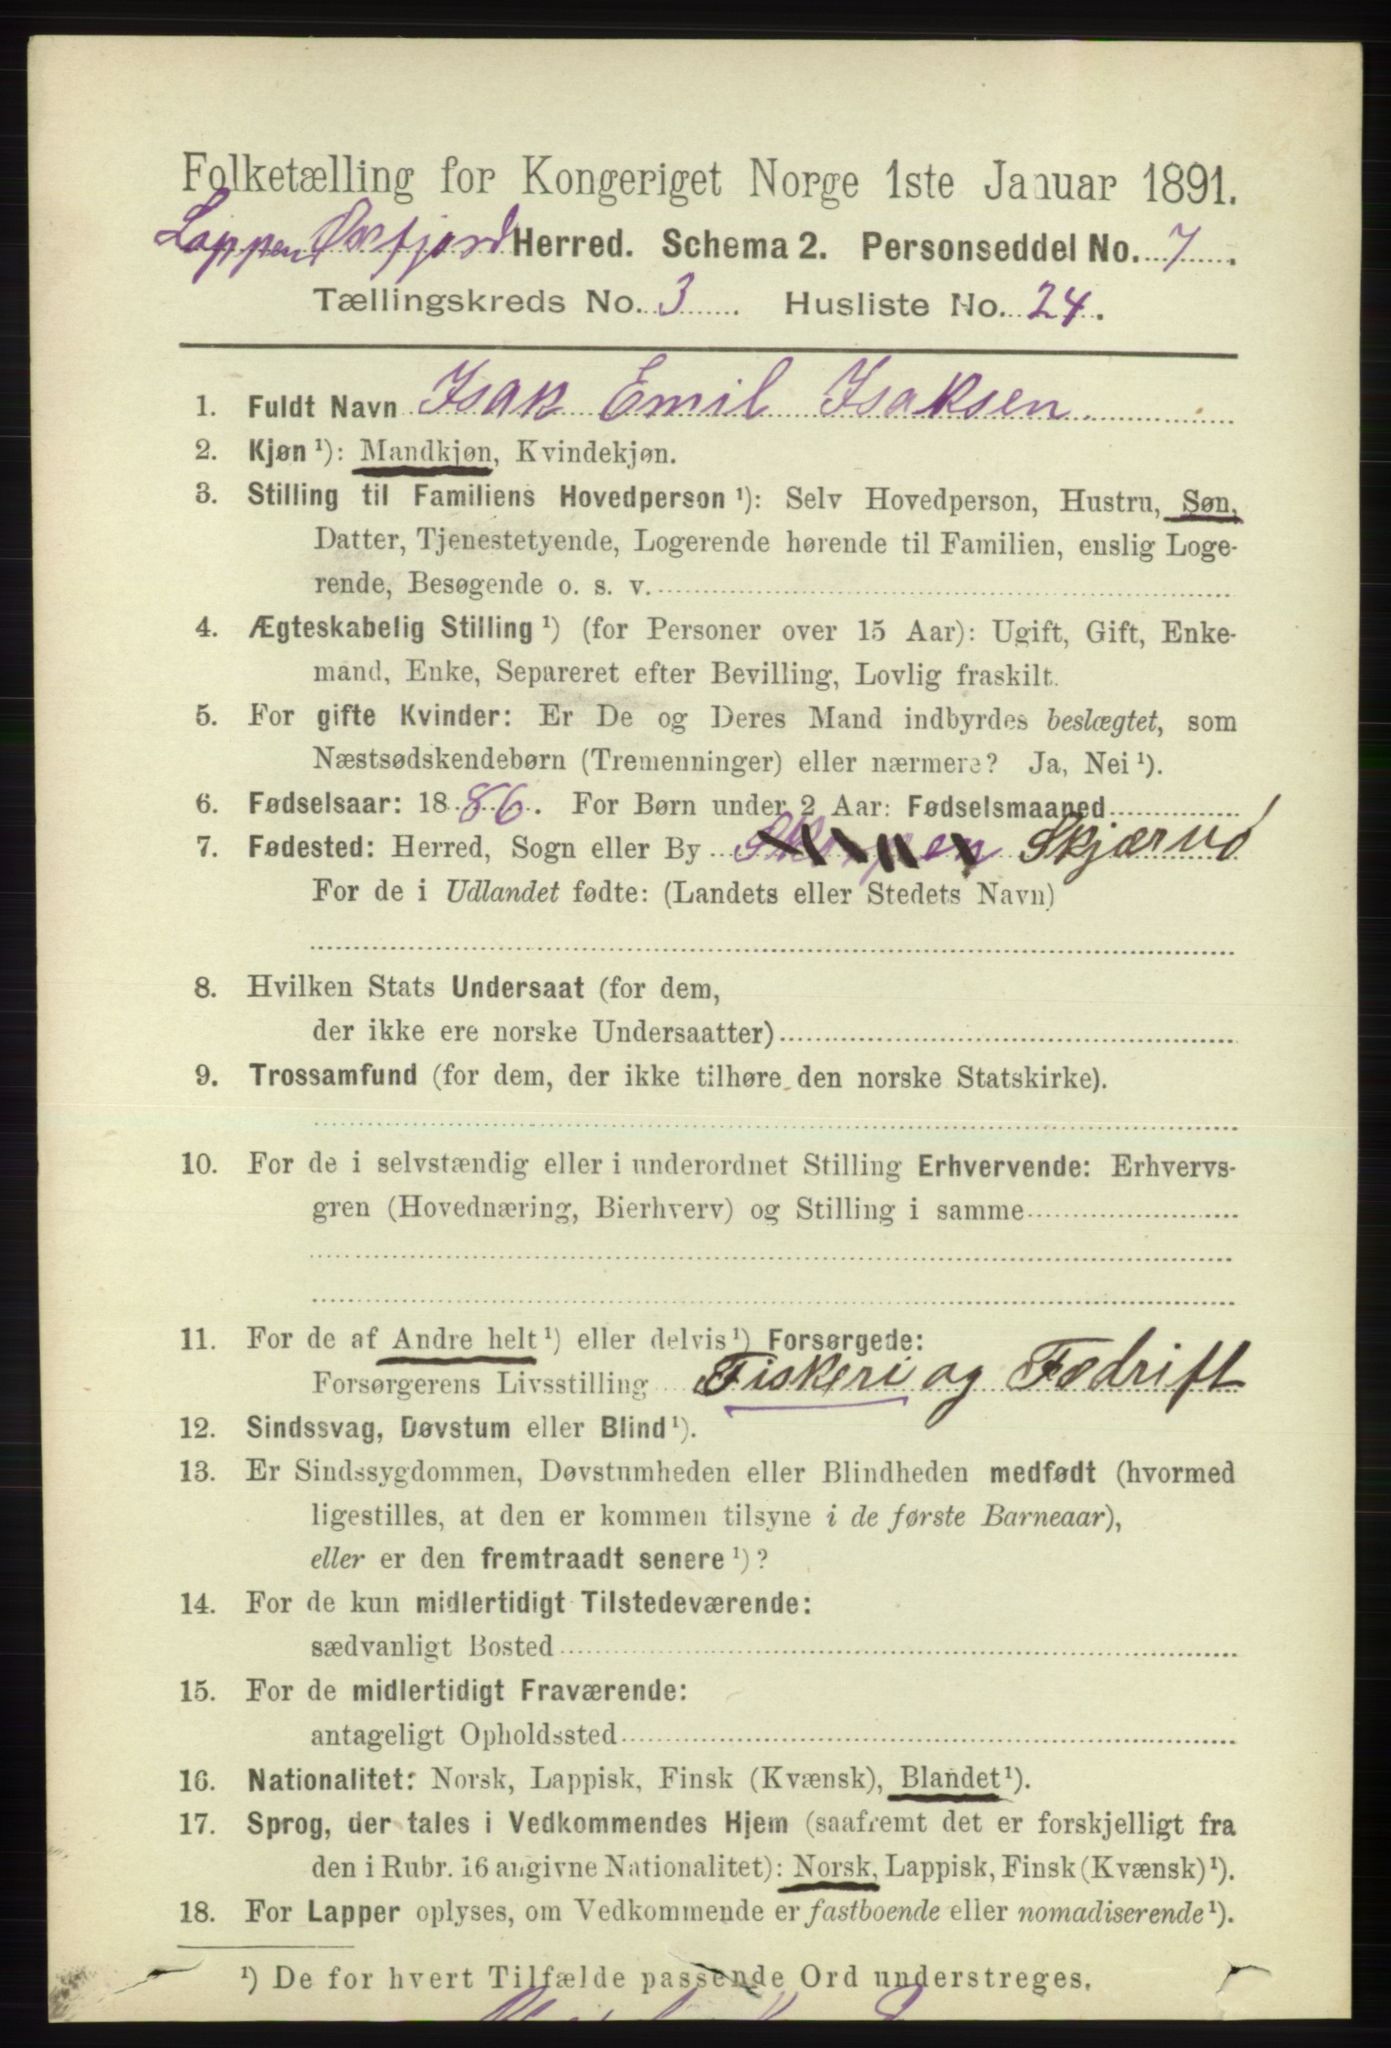 Folketælling for Kongeriget Norge 1ste Januar 1891.
Lappen Øxfjord Herred. Schema 2. Personseddel No. 7
Tællingskreds No. 3 Husliste No. 24.
1. Fuldt Navn Isak Emil Isaksen.
2. Kjøn ¹): Mandkjøn, Kvindekjøn.
3. Stilling til Familiens Hovedperson ¹): Selv Hovedperson, Hustru, Søn,
Datter, Tjenestetyende, Logerende hørende til Familien, enslig Loge-
rende, Besøgende o. s. v.
4. Ægteskabelig Stilling ¹) (for Personer over 15 Aar): Ugift, Gift, Enke-
mand, Enke, Separeret efter Bevilling, Lovlig fraskilt.
5. For gifte Kvinder: Er De og Deres Mand indbyrdes beslægtet, som
Næstsødskendebørn (Tremenninger) eller nærmere? Ja, Nei ¹).
6. Fødselsaar: 1886. For Børn under 2 Aar: Fødselsmaaned
7. Fødested: Herred, Sogn eller By Skjærvø
For de i Udlandet fødte: (Landets eller Stedets Navn)
8. Hvilken Stats Undersaat (for dem,
der ikke ere norske Undersaatter)
9. Trossamfund (for dem, der ikke tilhøre den norske Statskirke).
10. For de i selvstændig eller i underordnet Stilling Erhvervende: Erhvervs-
gren (Hovednæring, Bierhverv) og Stilling i samme
11. For de af Andre helt ¹) eller delvis ¹) Forsørgede:
Forsørgerens Livsstilling Fiskeri og Fædrift
12. Sindssvag, Døvstum eller Blind ¹).
13. Er Sindssygdommen, Døvstumheden eller Blindheden medfødt (hvormed
ligestilles, at den er kommen tilsyne i de første Barneaar),
eller er den fremtraadt senere ¹)?
14. For de kun midlertidigt Tilstedeværende:
sædvanligt Bosted
15. For de midlertidigt Fraværende:
antageligt Opholdssted
16. Nationalitet: Norsk, Lappisk, Finsk (Kvænsk), Blandet ¹).
17. Sprog, der tales i Vedkommendes Hjem (saafremt det er forskjelligt fra
den i Rubr. 16 angivne Nationalitet): Norsk, Lappisk, Finsk (Kvænsk) ¹).
18. For Lapper oplyses, om Vedkommende er fastboende eller nomadiserende ¹).
¹) De for hvert Tilfælde passende Ord understreges.